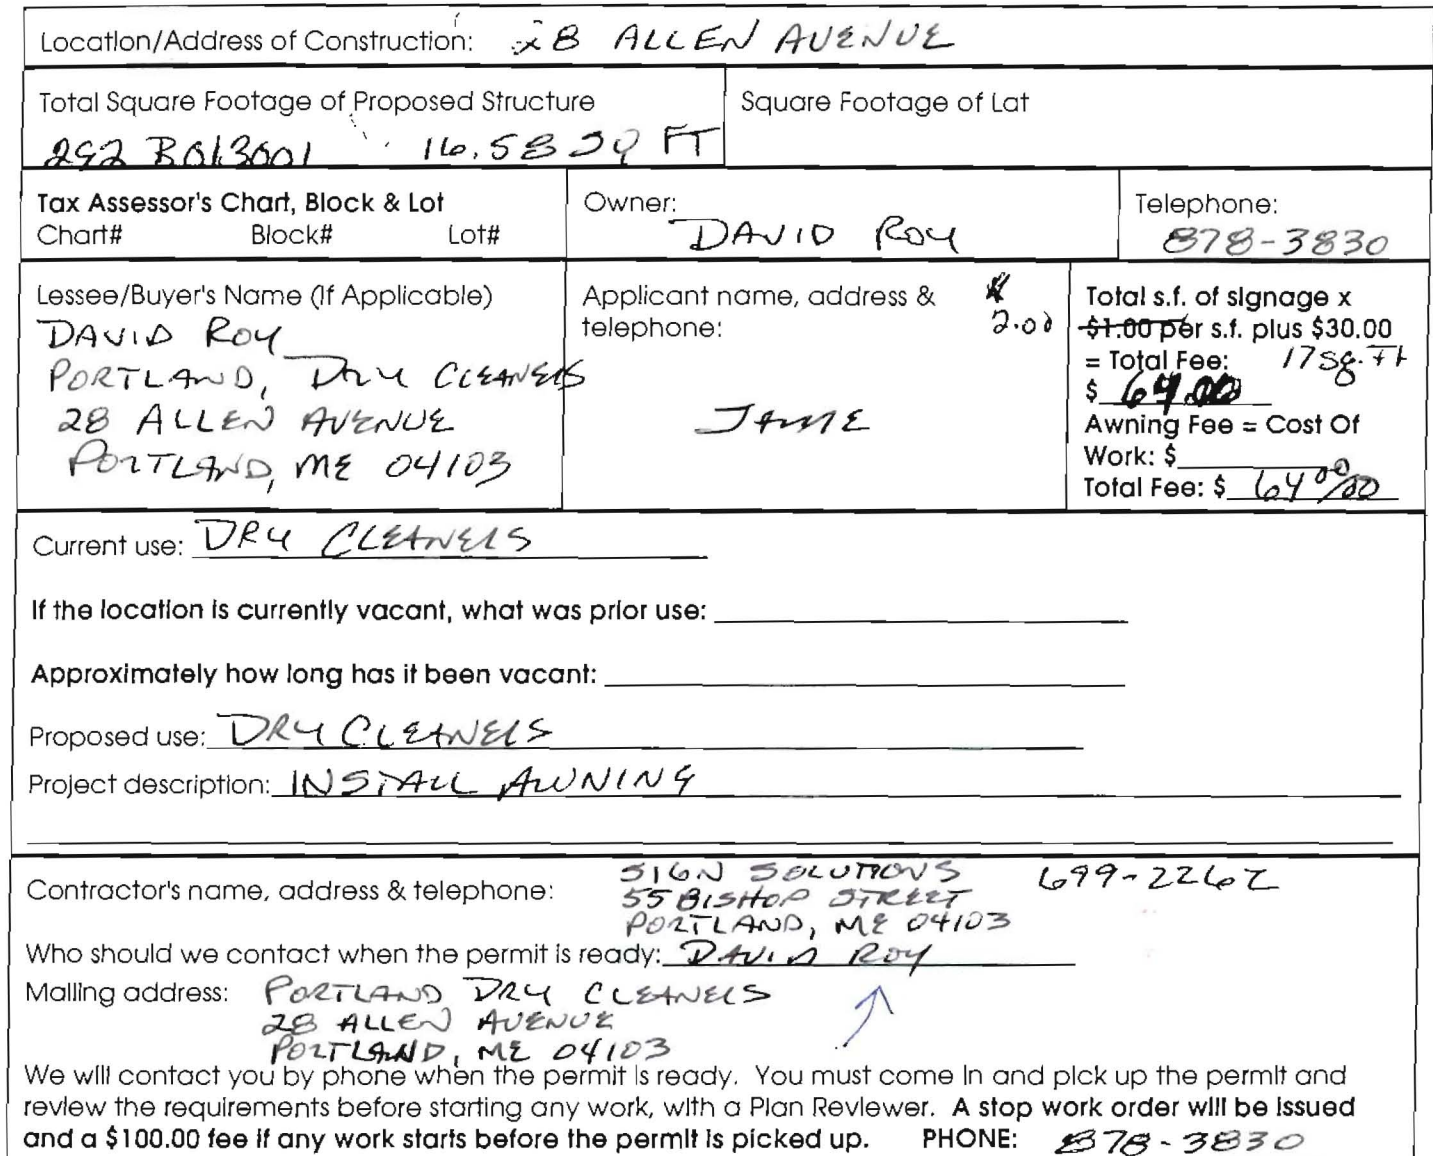 Location/Address of Construction: 28 ALLEN AVENUE
Total Square Footage of Proposed Structure
16.58 SQ FT
Square Footage of Lot
Tax Assessor's Chart, Block & Lot
Chart# Block# Lot#
Owner:
DAVID ROY
Telephone:
878-3830
Lessee/Buyer's Name (If Applicable)
DAVID ROY
PORTLAND, DRY CLEANERS
28 ALLEN AVENUE
PORTLAND, ME 04103
Applicant name, address &
telephone:
SAME
2.00
Total s.f. of signage x
$1.00 per s.f. plus $30.00
= Total Fee: 17 sq. ft
$ 64.00
Awning Fee = Cost Of
Work: $
Total Fee: $ 64.00
Current use: DRY CLEANERS
If the location is currently vacant, what was prior use:
Approximately how long has it been vacant:
Proposed use: DRY CLEANERS
Project description: INSTALL AWNING
Contractor's name, address & telephone: SIGN SOLUTIONS 699-2262
55 BISHOP STREET
PORTLAND, ME 04103
Who should we contact when the permit is ready: DAVID ROY
Mailing address: PORTLAND DRY CLEANERS
28 ALLEN AVENUE
PORTLAND, ME 04103
We will contact you by phone when the permit is ready. You must come in and pick up the permit and
review the requirements before starting any work, with a Plan Reviewer. A stop work order will be issued
and a $100.00 fee if any work starts before the permit is picked up. PHONE: 878-3830